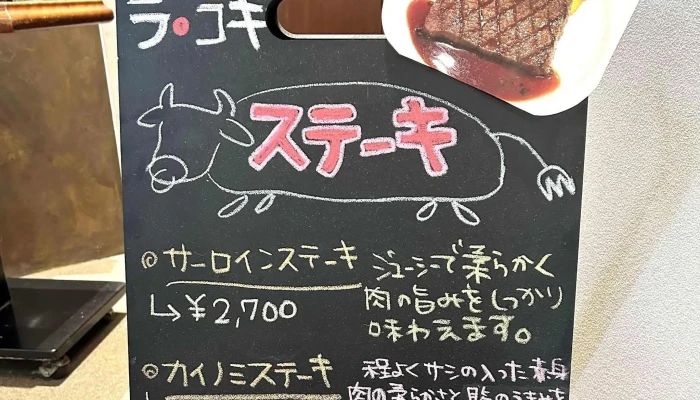 ラ・コキ
ステーキ
◎サーロインステーキ
↳¥2,700
ジューシーで柔らかく
肉の旨みをしっかり
味わえます。
◎カイノミステーキ
程よくサシの入った赤身
肉の柔らかさと脂のうまみを